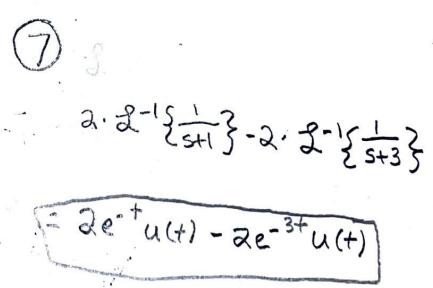 7
2 · ℒ⁻¹{1/(s+1)} - 2 · ℒ⁻¹{1/(s+3)}
= 2e⁻ᵗ u(t) - 2e⁻³ᵗ u(t)